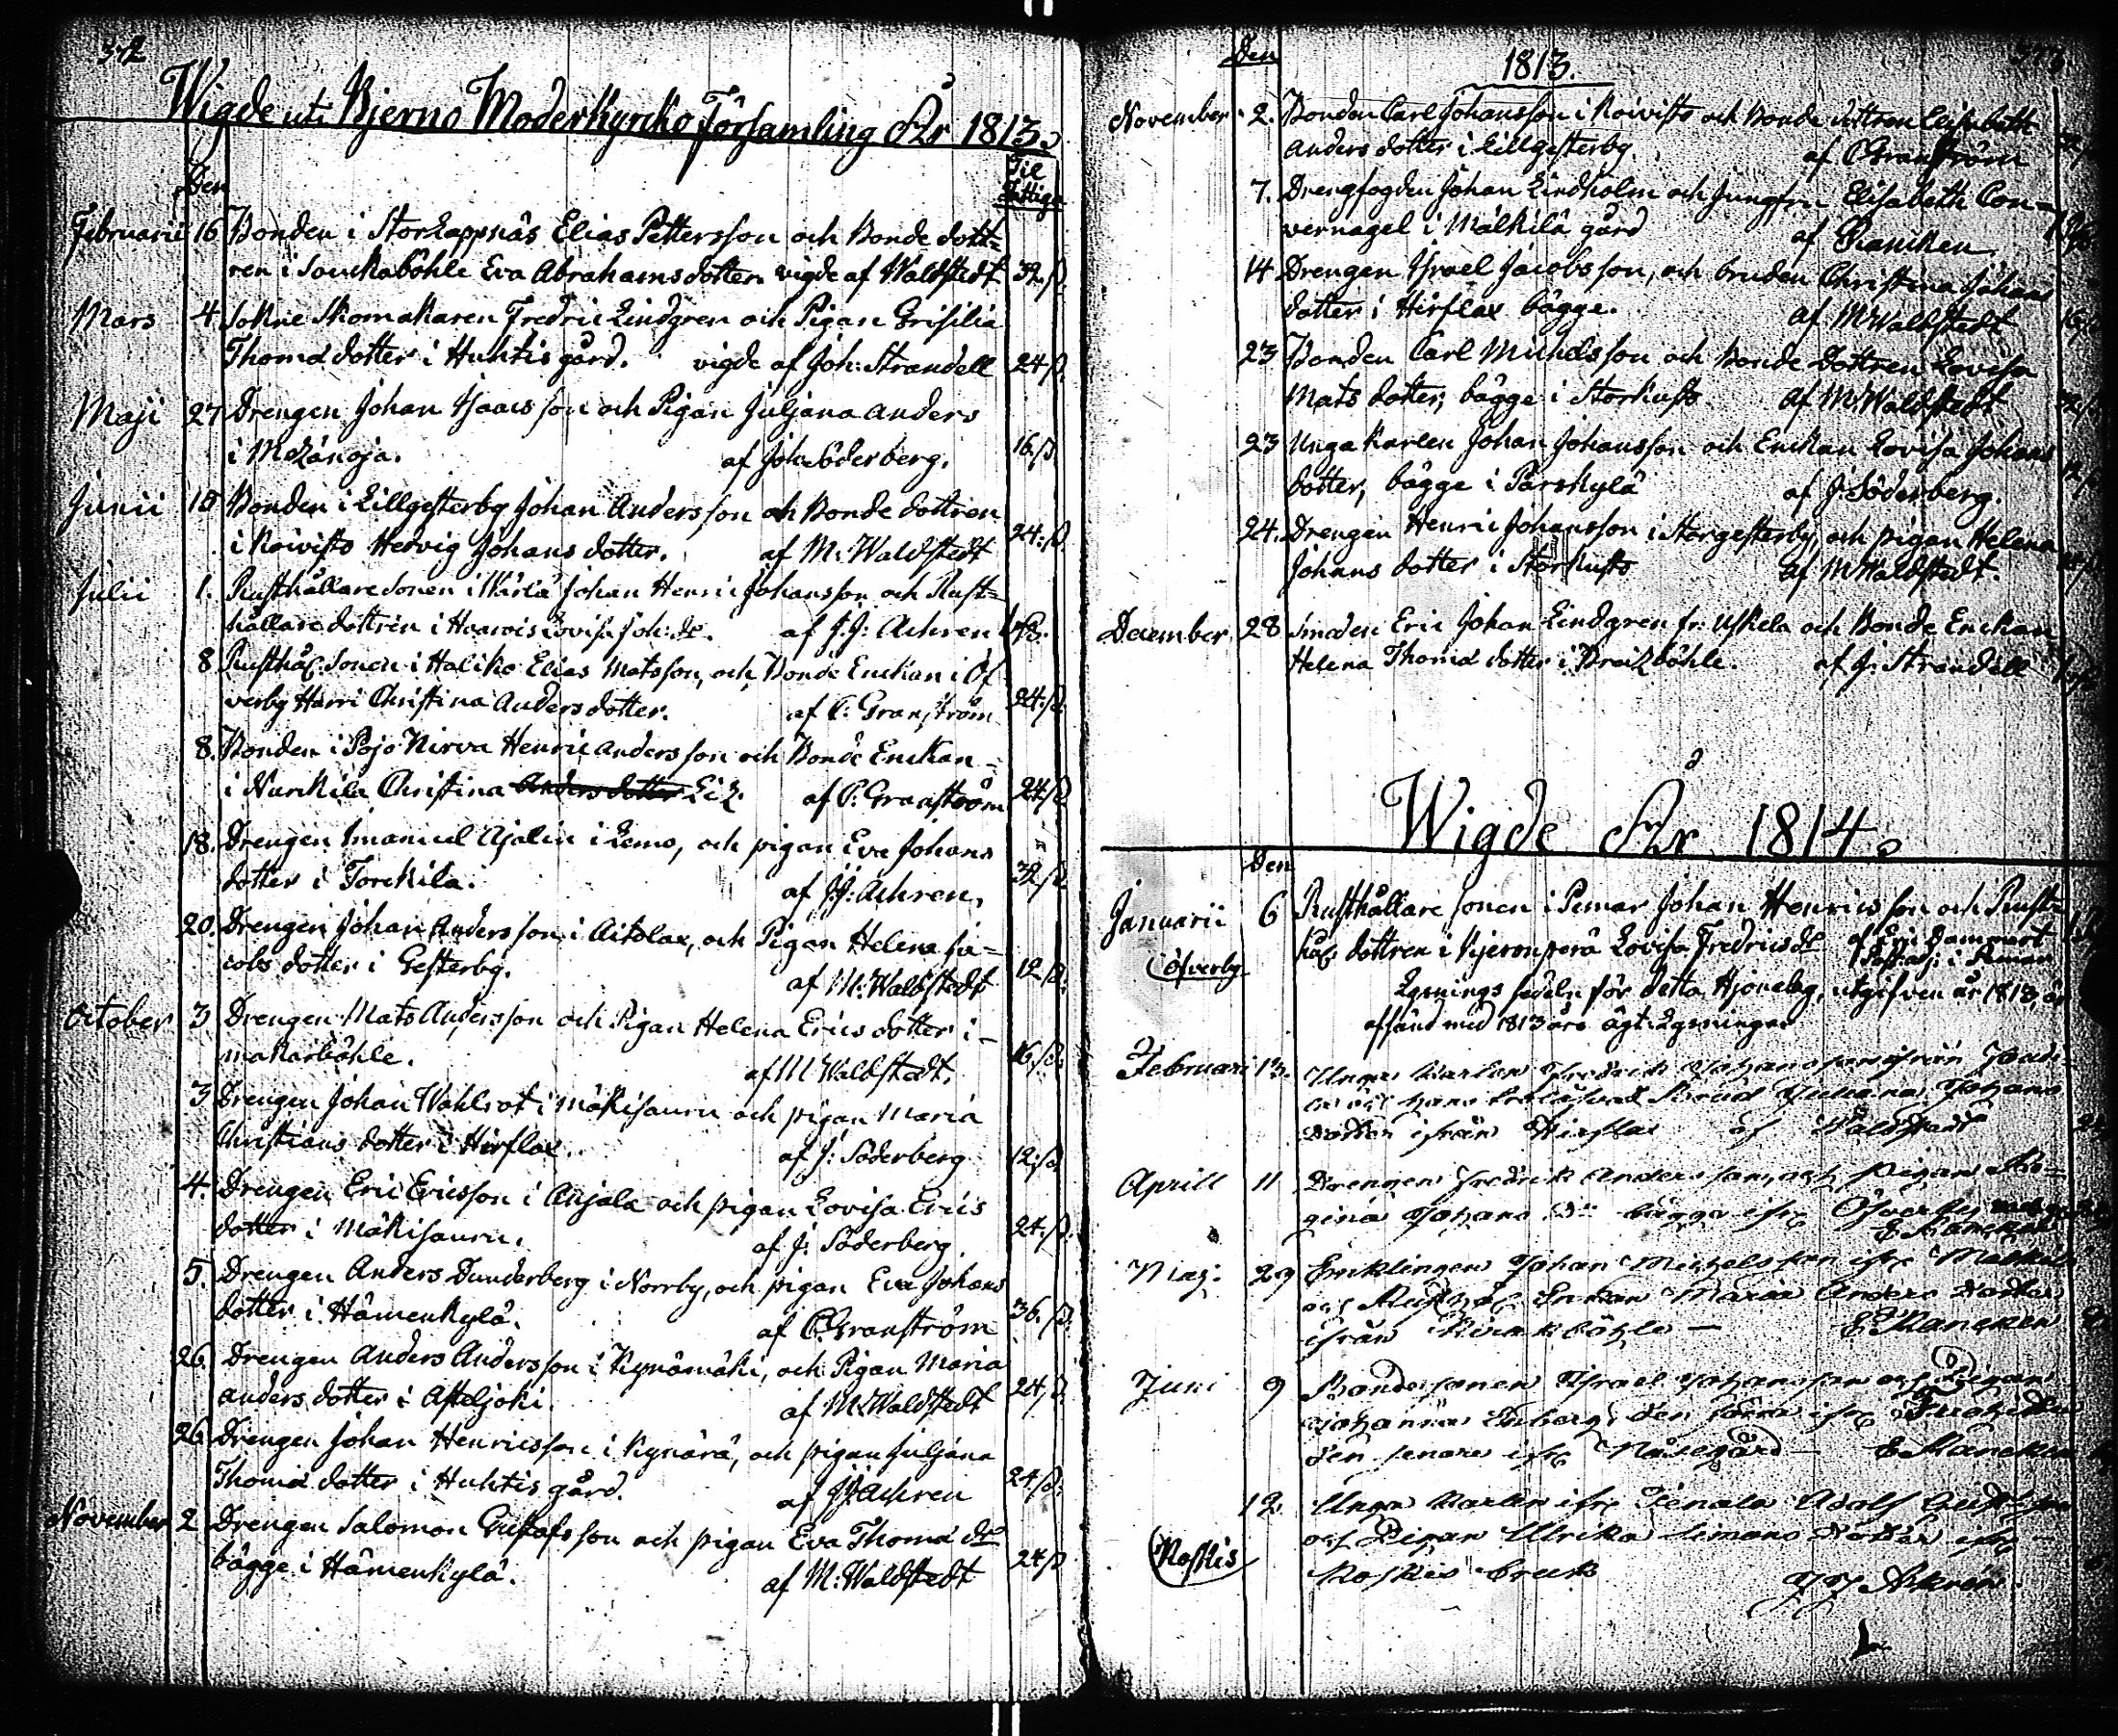 372
Wigde uti Bjerno Moderkyrcko Församling År 1813.
Den
Til Fattiga
Februarii 16 Bonden i Storlappnäs Elias Pettersson och Bonde dott=
ren i Souckaböhle Eva Abrahamsdotter vigde af Waldstedt 32.ß.
Mars 4 Sokne Skomakaren Fredric Lindgren och Pigan Grisilia
Thomæ dotter i Huhtis gård. vigde af Joh: Strandell 24 ß.
Maji 27 Drengen Johan Isaacsson och Pigan Juljana Anders
i Melänoja. af Joh: Söderberg. 16 ß.
Junii 10 Bonden i Lillgesterby Johan Andersson och Bonde dottren
i Koivisto Hedvig Johans dotter. af M. Waldstedt 24.ß.
Julii 1. Rusthållare sonen i Wärlä Johan Henric Johansson och Rust=
hållare dottren i Lovisa Joh: dr. af J.J: Achren
8 Rusthål. Sonen i Haliko Elias Matsson, och Bonde Enckan i Öf
verby Harri Christina Andersdotter. af C: Granström 24.ß.
8. Bonden i Pojo Nirva Henric Andersson och Bonde Enckan
i Nurckila Christina Anders dotter af C: Granström 24 ß.
18. Drengen Imanuel Ajalin i Lemo, och pigan Eva Johans
dotter i Torckila. af J.J: Achren, 32 ß.
20. Drengen Johan Andersson i Aitolax, och Pigan Helena Ja=
cobs dotter i Gesterby. af M: Waldstedt 12 ß.
October 3 Drengen Mats Andersson och Pigan Helena Erics dotter i
makarböhle. af M Waldstedt. 16 ß.
3 Drengen Johan Wahlrot i Mäkisauru och pigan Maria
Christians dotter i Hirslax. af J: Söderberg 12 ß.
4. Drengen Eric Ericsson i Anjala och pigan Lovisa Erics
dotter i Mäkisauru. af J: Söderberg. 24.ß.
5. Drengen Anders Dunderberg i Norrby, och pigan Eva Johans
dotter i Hämenkylä. af C. Granström 36.ß.
26 Drengen Anders Andersson i Kynämäki, och Pigan Maria
anders dotter i Asteljoki. af M. Waldstedt 24 ß.
26 Drengen Johan Henricsson i Kynärä, och pigan Juljana
Thomæ dotter i Huhtis gård. af J.J: Achren 24 ß.
November 2 Drengen Salomon Gustafsson och pigan Eva Thomæ dr
bägge i Hämenkylä. af M: Waldstedt 24 ß
Den 1813. 373
November 2. Bonden Carl Johansson i Koivisto och Bonde dottren Elisabeth
Anders dotter i Lillgesterby. af C Granström
7. Drengfogden Johan Lindholm och Jungfru Elisabeth Con=
vernagel i Mälkilä gård af Rancken
14 Drengen Israel Jacobsson, och bruden Christina Johans
dotter i Hirslax bägge. af M Waldstedt
23 Bonden Carl Michelsson och Bonde Dottren Lovisa
Mats dotter, bägge i Storkusto af M. Waldstedt
23 Unga Karlen Johan Johansson och Enckan Lovisa Johans
dotter, bägge i Pärskylä af J. Söderberg.
24. Drengen Henric Johansson i Storgesterby, och pigan Helena
Johans dotter i Storkusto af M Waldstedt.
December 28 Smeden Eric Johan Lindgren fr. Uskela och Bonde Enckan
Helena Thomæ dotter i Breitböhle. af J: Strandell
Wigde År 1814.
Den
Januarii 6 Rusthållare sonen i Pemar Johan Henricsson och Rust=
hål. dottren i Kjeronperä Lovisa Fredricsdr af Eric Dammert
Öfverby i Pemar
Lysnings sedeln för detta Hjonelag, utgifven år 1813, är
afsänd med 1813 års ägt: Lysningar
Februari 13. Unga Karlen Fredrich Johansson ifrån
och hans trolofvad Brud Juliana Johans
dotter ifrån Hirslax af Waldstedt
Aprill 11 Drengen Fredrik Andersson, och pigan Re=
gina Johans dr bägge ifr. Öfverby
E Rancken
Maj. 29 Enklingen Johan Michelsson ifr.
och Rusth. Enkan Maria Anders dotter
ifrån böhle — E Rancken
Juni 9 Bondesonen Israel Johansson och Pigan
Johanna Enberg, den förra ifr.
den senare ifr. Näsegård — E Rancken
12. Unga Karlen ifr. Tenala Adolf
och Pigan Ulrika Simons dotter ifr.
Koskis Koskis bruk J J Akren.